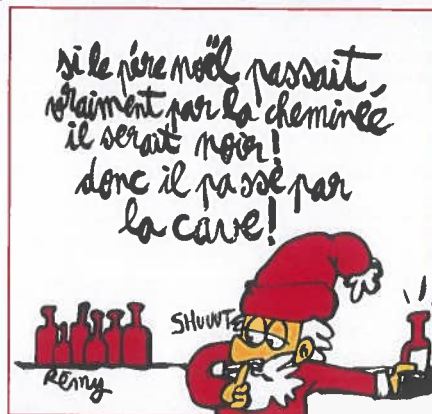 si le père noël passait
vraiment par la cheminée
il serait noir!
donc il passe par
la cave!
SHUUUT
Rémy